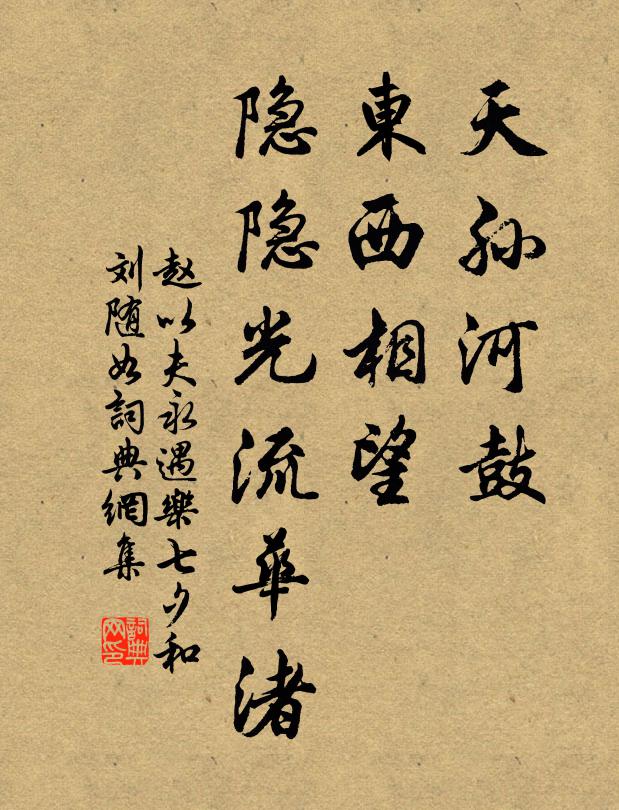 天孙河鼓
東西相望
隐隐光流華渚
赵以夫永遇樂七夕和
刘随如詞典網集
詞典网印